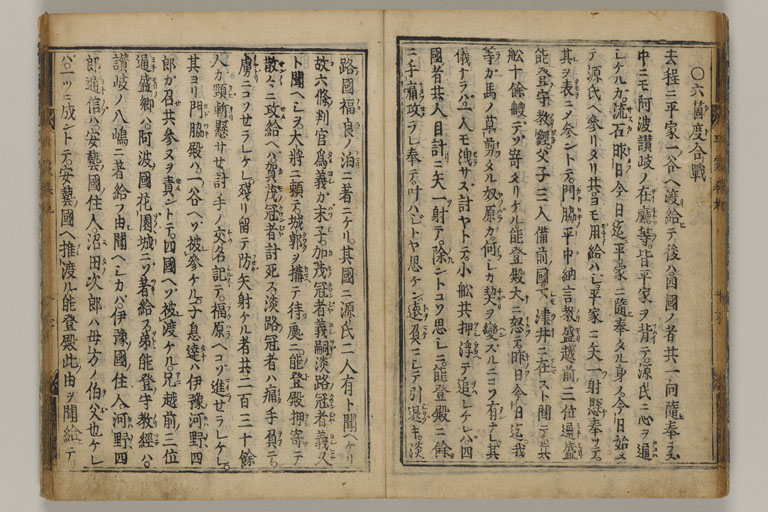 〇六箇度合戰
去程ニ平家一谷ヘ渡給テ後ハ四國ノ者共一向隨奉ラス
中ニモ阿波讃岐ノ在廳等皆平家ヲ背テ源氏ニ心ヲ通
シケルカ流石昨日今日迄平家ニ隨奉タル身ノ今日始メ
テ源氏ヘ參リタリ共ヨモ用給ハシ平家ニ矢一射懸奉ツテ
其ヲ表ニメ參ントテ門脇平中納言教盛越前三位通盛
能登守教經父子三人備前國下津井ニ在スト聞テ兵
舩十餘艘テソ寄タリケル能登殿大ニ怒テ昨日今日迄我
等カ馬ノ草剪タル奴原カ何シカ契ヲ變スルニコソ有ナレ其
儀ナラハ一人モ洩サス討ヤトテ小舩共押浮テ追レケレハ四
國者共人目計ニ矢一射テ除ントコソ思シニ能登殿ニ餘
ニ手痛攻ラレ奉テ叶ハシトヤ思ケン遠負ニシテ引退キ淡
路國福良ノ泊ニ著ニケリ其國ニ源氏二人有ト聞ヘケリ
故六條判官爲義カ末子加茂冠者義嗣淡路冠者義久
ト聞ヘシヲ大將ニ頼テ城郭ヲ搆テ待處ニ能登殿押寄テ
散々ニ攻給ヘハ賀茂冠者討死ス淡路冠者ハ痛手負テ
虜ニコソセラレケレ殘リ留テ防矢射ケル者共二百三十餘
人カ頸斬懸サセ討手ノ交名記テ福原ヘコソ進セラレケレ
其ヨリ門脇殿ハ一谷ヘソ被參ケル子息達ハ伊豫河野四
郎カ召共參ヌヲ責ントテ四國ヘソ被渡ケル兄越前三位
通盛卿ハ阿波國花園城ニソ著給フ弟能登守教經ハ
讃岐ノ八嶋ニ著給フ由聞ヘシカハ伊豫國住人河野四
郎通信ハ安藝國住人沼田次郎ハ母方ノ伯父也ケレ
ハ一ツニ成ントテ安藝國ヘ推渡ル能登殿此由ヲ聞給テ